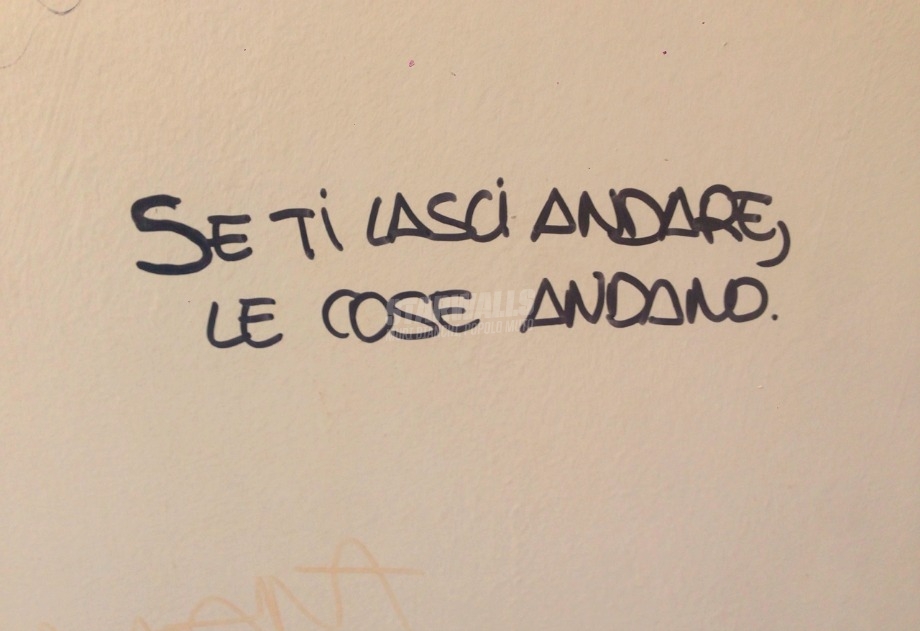 SE Ti LASCi ANDARE,
LE COSE ANDANO.
STARWALLS